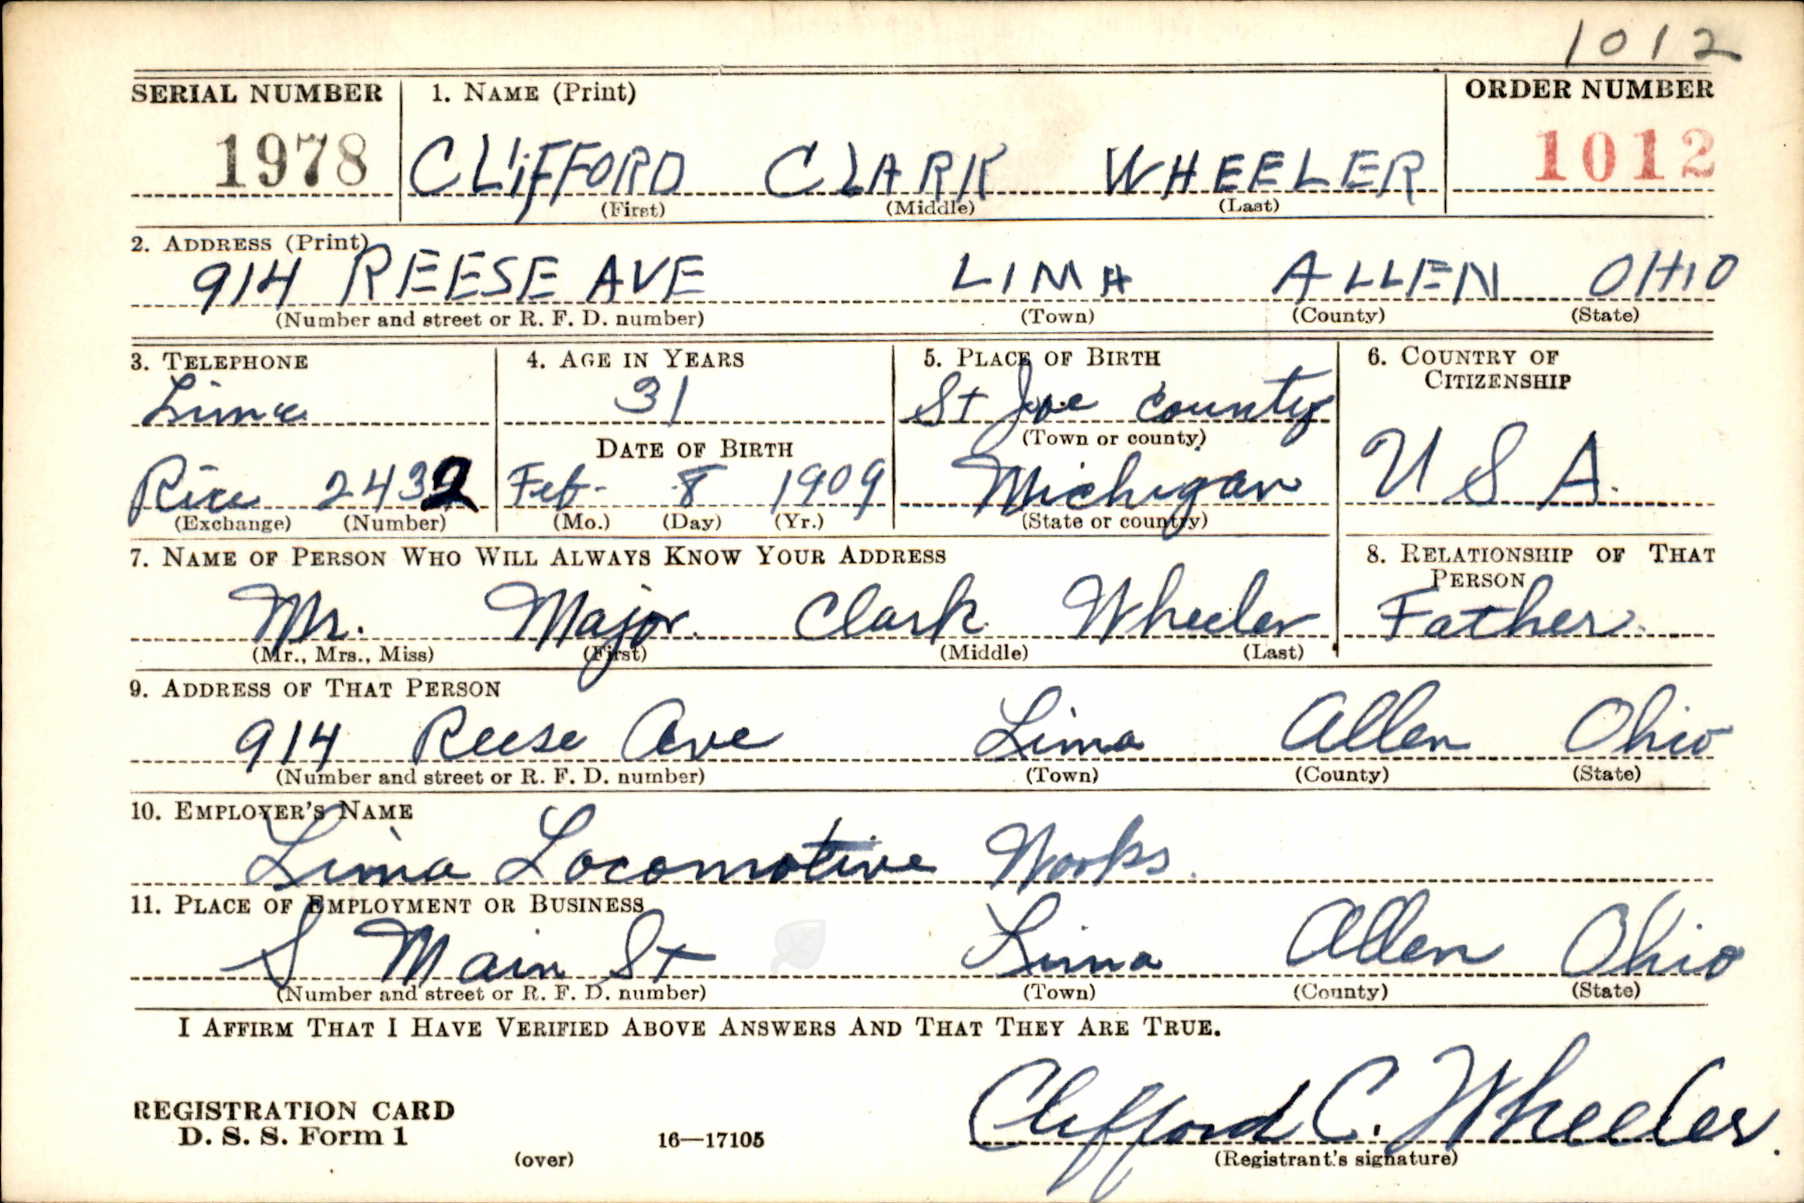 1012
SERIAL NUMBER 1. NAME (Print) ORDER NUMBER
1978 CLIFFORD CLARK WHEELER 1012
(First) (Middle) (Last)
2. ADDRESS (Print)
914 REESE AVE LIMA ALLEN OHIO
(Number and street or R. F. D. number) (Town) (County) (State)
3. TELEPHONE 4. AGE IN YEARS 5. PLACE OF BIRTH 6. COUNTRY OF CITIZENSHIP
Lima 31 St Joe County
DATE OF BIRTH (Town or county)
Rice 2432 Feb. 8 1909 Michigan U S A.
(Exchange) (Number) (Mo.) (Day) (Yr.) (State or country)
7. NAME OF PERSON WHO WILL ALWAYS KNOW YOUR ADDRESS 8. RELATIONSHIP OF THAT PERSON
Mr. Major Clark Wheeler Father
(Mr., Mrs., Miss) (First) (Middle) (Last)
9. ADDRESS OF THAT PERSON
914 Reese Ave Lima Allen Ohio
(Number and street or R. F. D. number) (Town) (County) (State)
10. EMPLOYER'S NAME
Lima Locomotive Works.
11. PLACE OF EMPLOYMENT OR BUSINESS
S Main St Lima Allen Ohio
(Number and street or R. F. D. number) (Town) (County) (State)
I AFFIRM THAT I HAVE VERIFIED ABOVE ANSWERS AND THAT THEY ARE TRUE.
Clifford C. Wheeler.
REGISTRATION CARD
D. S. S. Form 1 16—17105
(over) (Registrant's signature)